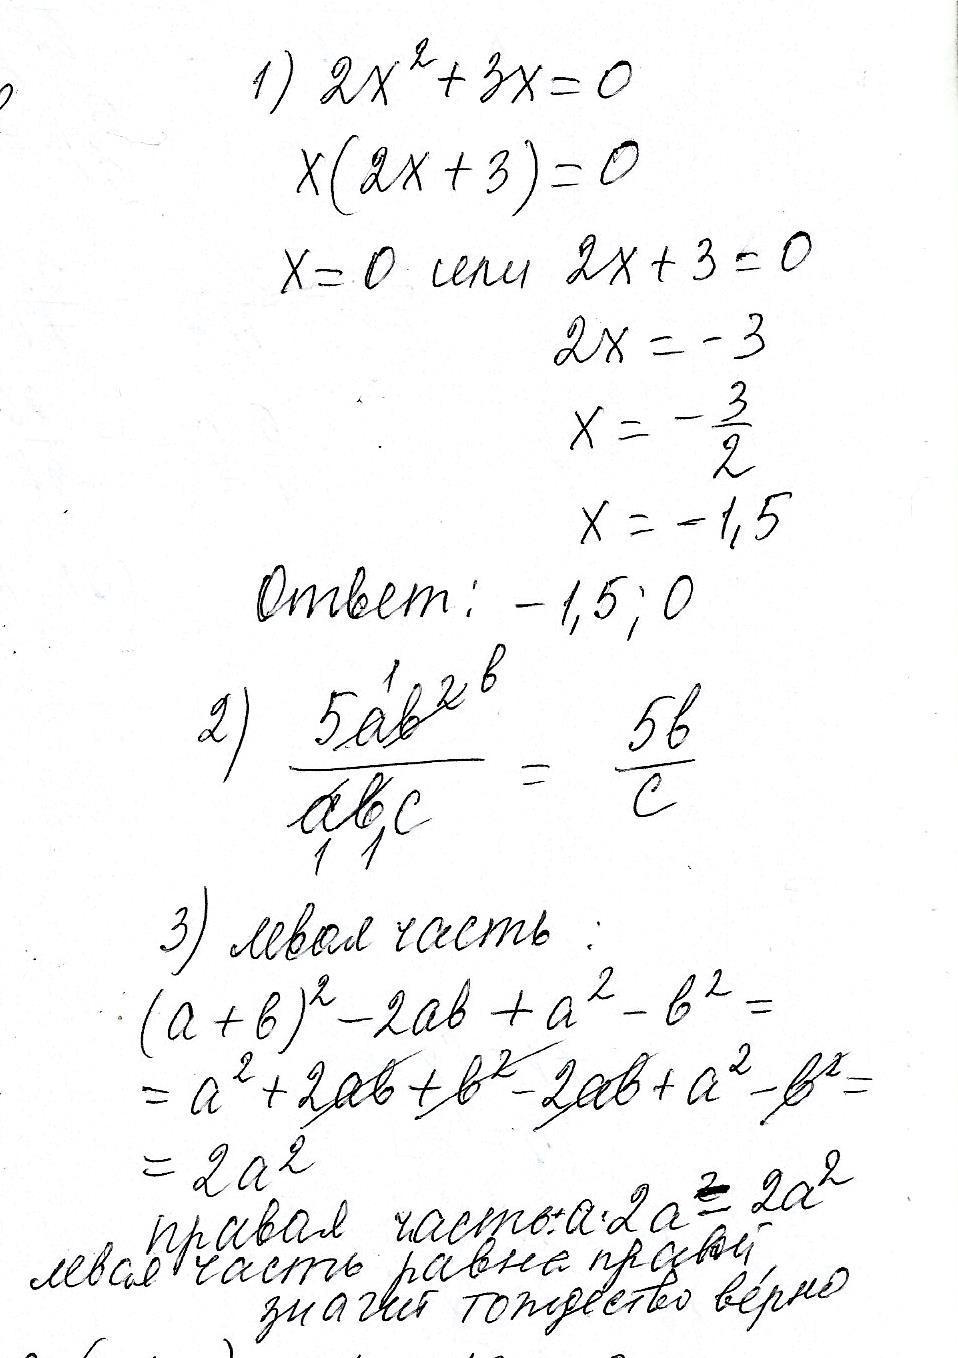 1) 2x² + 3x = 0
x(2x + 3) = 0
x = 0 или 2x + 3 = 0
2x = -3
x = - 3/2
x = -1,5
Ответ: -1,5; 0
2) 5ab² / abc = 5b / c
1 b
1 1
3) левая часть:
(a + b)² - 2ab + a² - b² =
= a² + 2ab + b² - 2ab + a² - b² =
= 2a²
правая часть: a · 2a = 2a²
левая часть равна правой
значит тождество верно